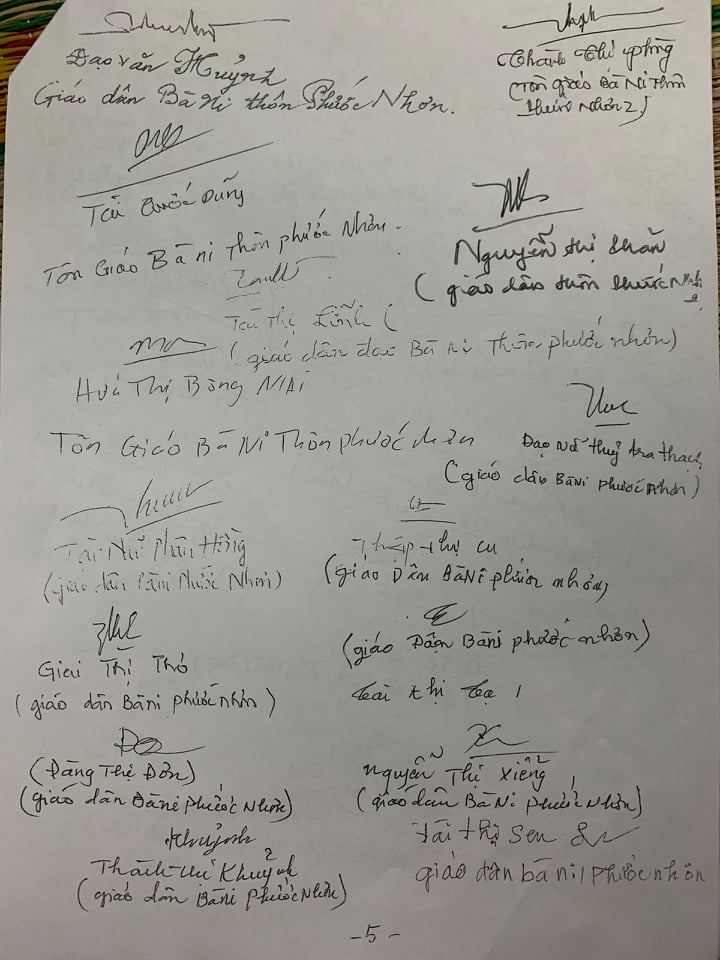 Đạo văn Huỳnh
Giáo dân Bà Ni thôn Phước Nhơn.
Thành Thị Phòng
(Tôn giáo Bà Ni thôn
Phước Nhơn 2)
Tài Quốc Dũng
Tôn Giáo Bà ni Thôn phước Nhơn.
Nguyễn thị
(giáo dân thôn Phước Nhơn
Tài Thị Lĩnh (
(giáo dân đạo Bà Ni Thôn phước nhơn)
Hứa Thị Bông NIAI
Tôn Giáo Bà Ni Thôn phước nhơn
Đạo Nữ thuỳ
(giáo dân Bàni phước Nhơn)
Tài Nữ Phan Hồng
(giáo dân Bàni Phước Nhơn)
Thập thị cu
(giáo Dân BàNi phước nhơn)
(giáo Dân Bàni phước nhơn)
Giai Thị Thỏ
(giáo dân Bàni phước nhơn)
Tài thị
(Đàng Thị Đơn)
(giáo dân Bàni Phước Nhơn)
Nguyễn Thị Xiểng
(giáo dân Bà Ni phước Nhơn)
Khuỷnh
Thành Khuỷnh
(giáo dân Bàni phước Nhơn)
Tài thị Sen
giáo dân bà ni phước nhơn
-5-